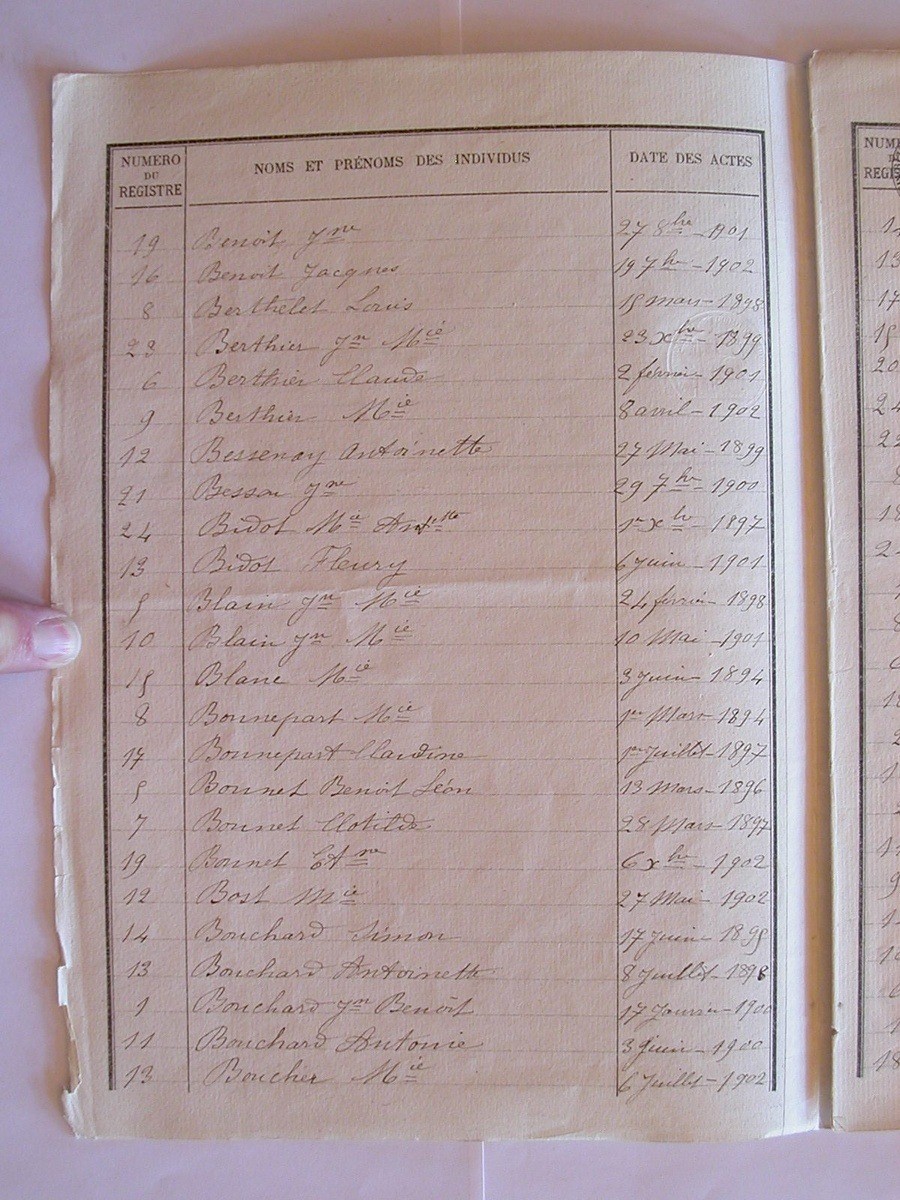 NUMERO DU REGISTRE NOMS ET PRÉNOMS DES INDIVIDUS DATE DES ACTES
19 Benoit Jne 27 8bre 1901
16 Benoit Jacques 19 7bre 1902
8 Berthelet Louis 15 mars 1898
23 Berthier Jn Mie 23 Xbre 1899
6 Berthier Claude 2 février 1901
9 Berthier Mie 8 avril 1902
12 Bessenay Antoinette 27 Mai 1899
21 Besson Jne 29 7bre 1900
24 Bidot Mie Antette 1er Xbre 1897
13 Bidot Fleury 6 Juin 1901
5 Blain Jn Mie 24 février 1898
10 Blain Jn Mie 10 Mai 1901
15 Blanc Mie 3 Juin 1894
8 Bonnepart Mie 1er Mars 1894
17 Bonnepart Claudine 1er Juillet 1897
5 Bonnet Benoit Léon 13 Mars 1896
7 Bonnet Clotilde 28 Mars 1897
19 Bonnet 6 Xbre 1902
12 Bost Mie 27 Mai 1902
14 Bouchard Simon 17 Juin 1895
13 Bouchard Antoinette 8 Juillet 1898
1 Bouchard Jn Benoit 17 Janvier 1900
11 Bouchard Antonie 3 Juin 1900
13 Boucher Mie 6 Juillet 1902